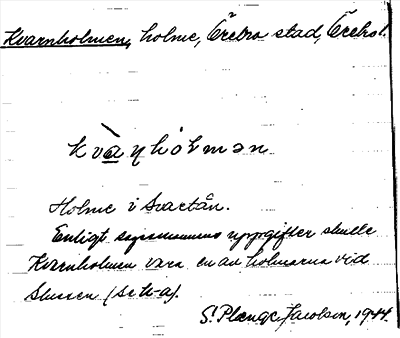 Kvarnholmen, holme, Örebro stad, Örebro l.
kvàṇhólmən
Holme i Svartån.
Enligt uppgifter skulle
Kvarnholmen vara en av holmarna vid
Slussen (se h-a).
S. Plenge Jacobson, 1944.